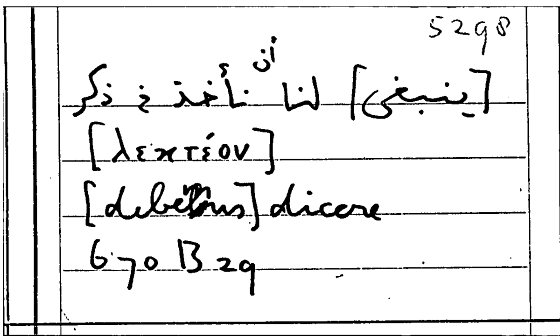 5298
[ينبغى] لنا أن نأخذ في ذكر
[λεκτέον]
[debemus] dicere
670 B 29